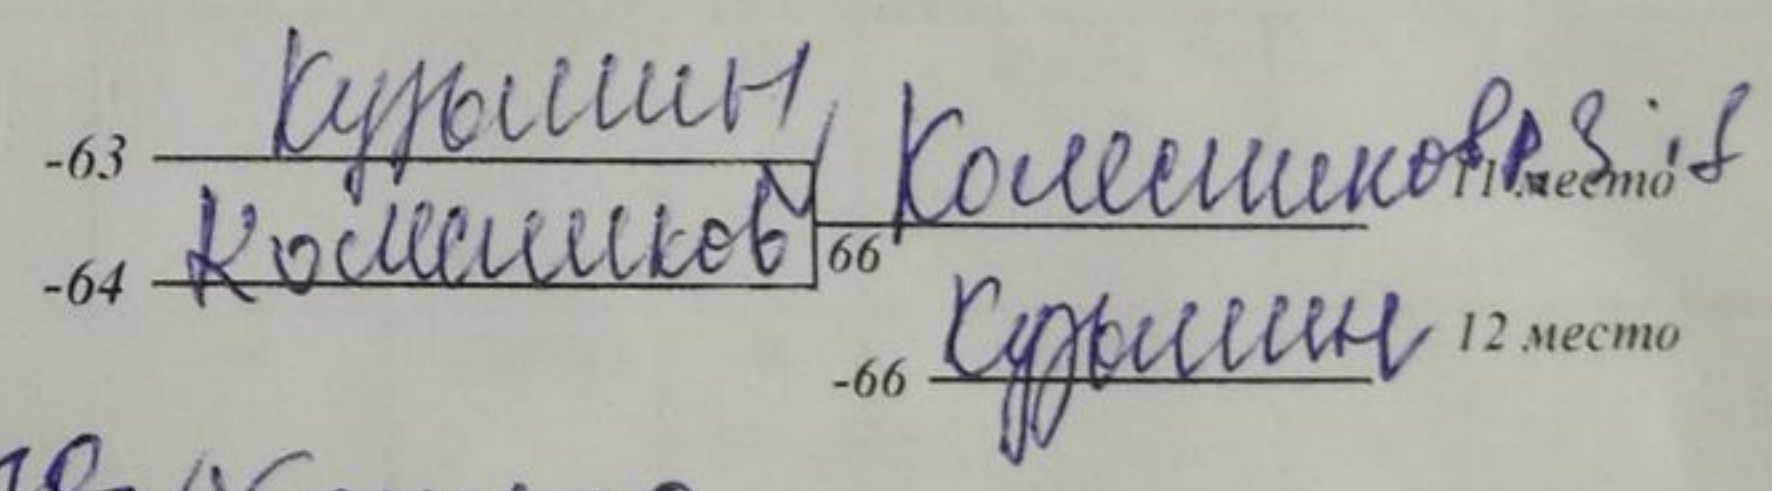 -63 Кузьмин
-64 Колесников
66 Колесников 3:1
11 место
-66 Кузьмин 12 место